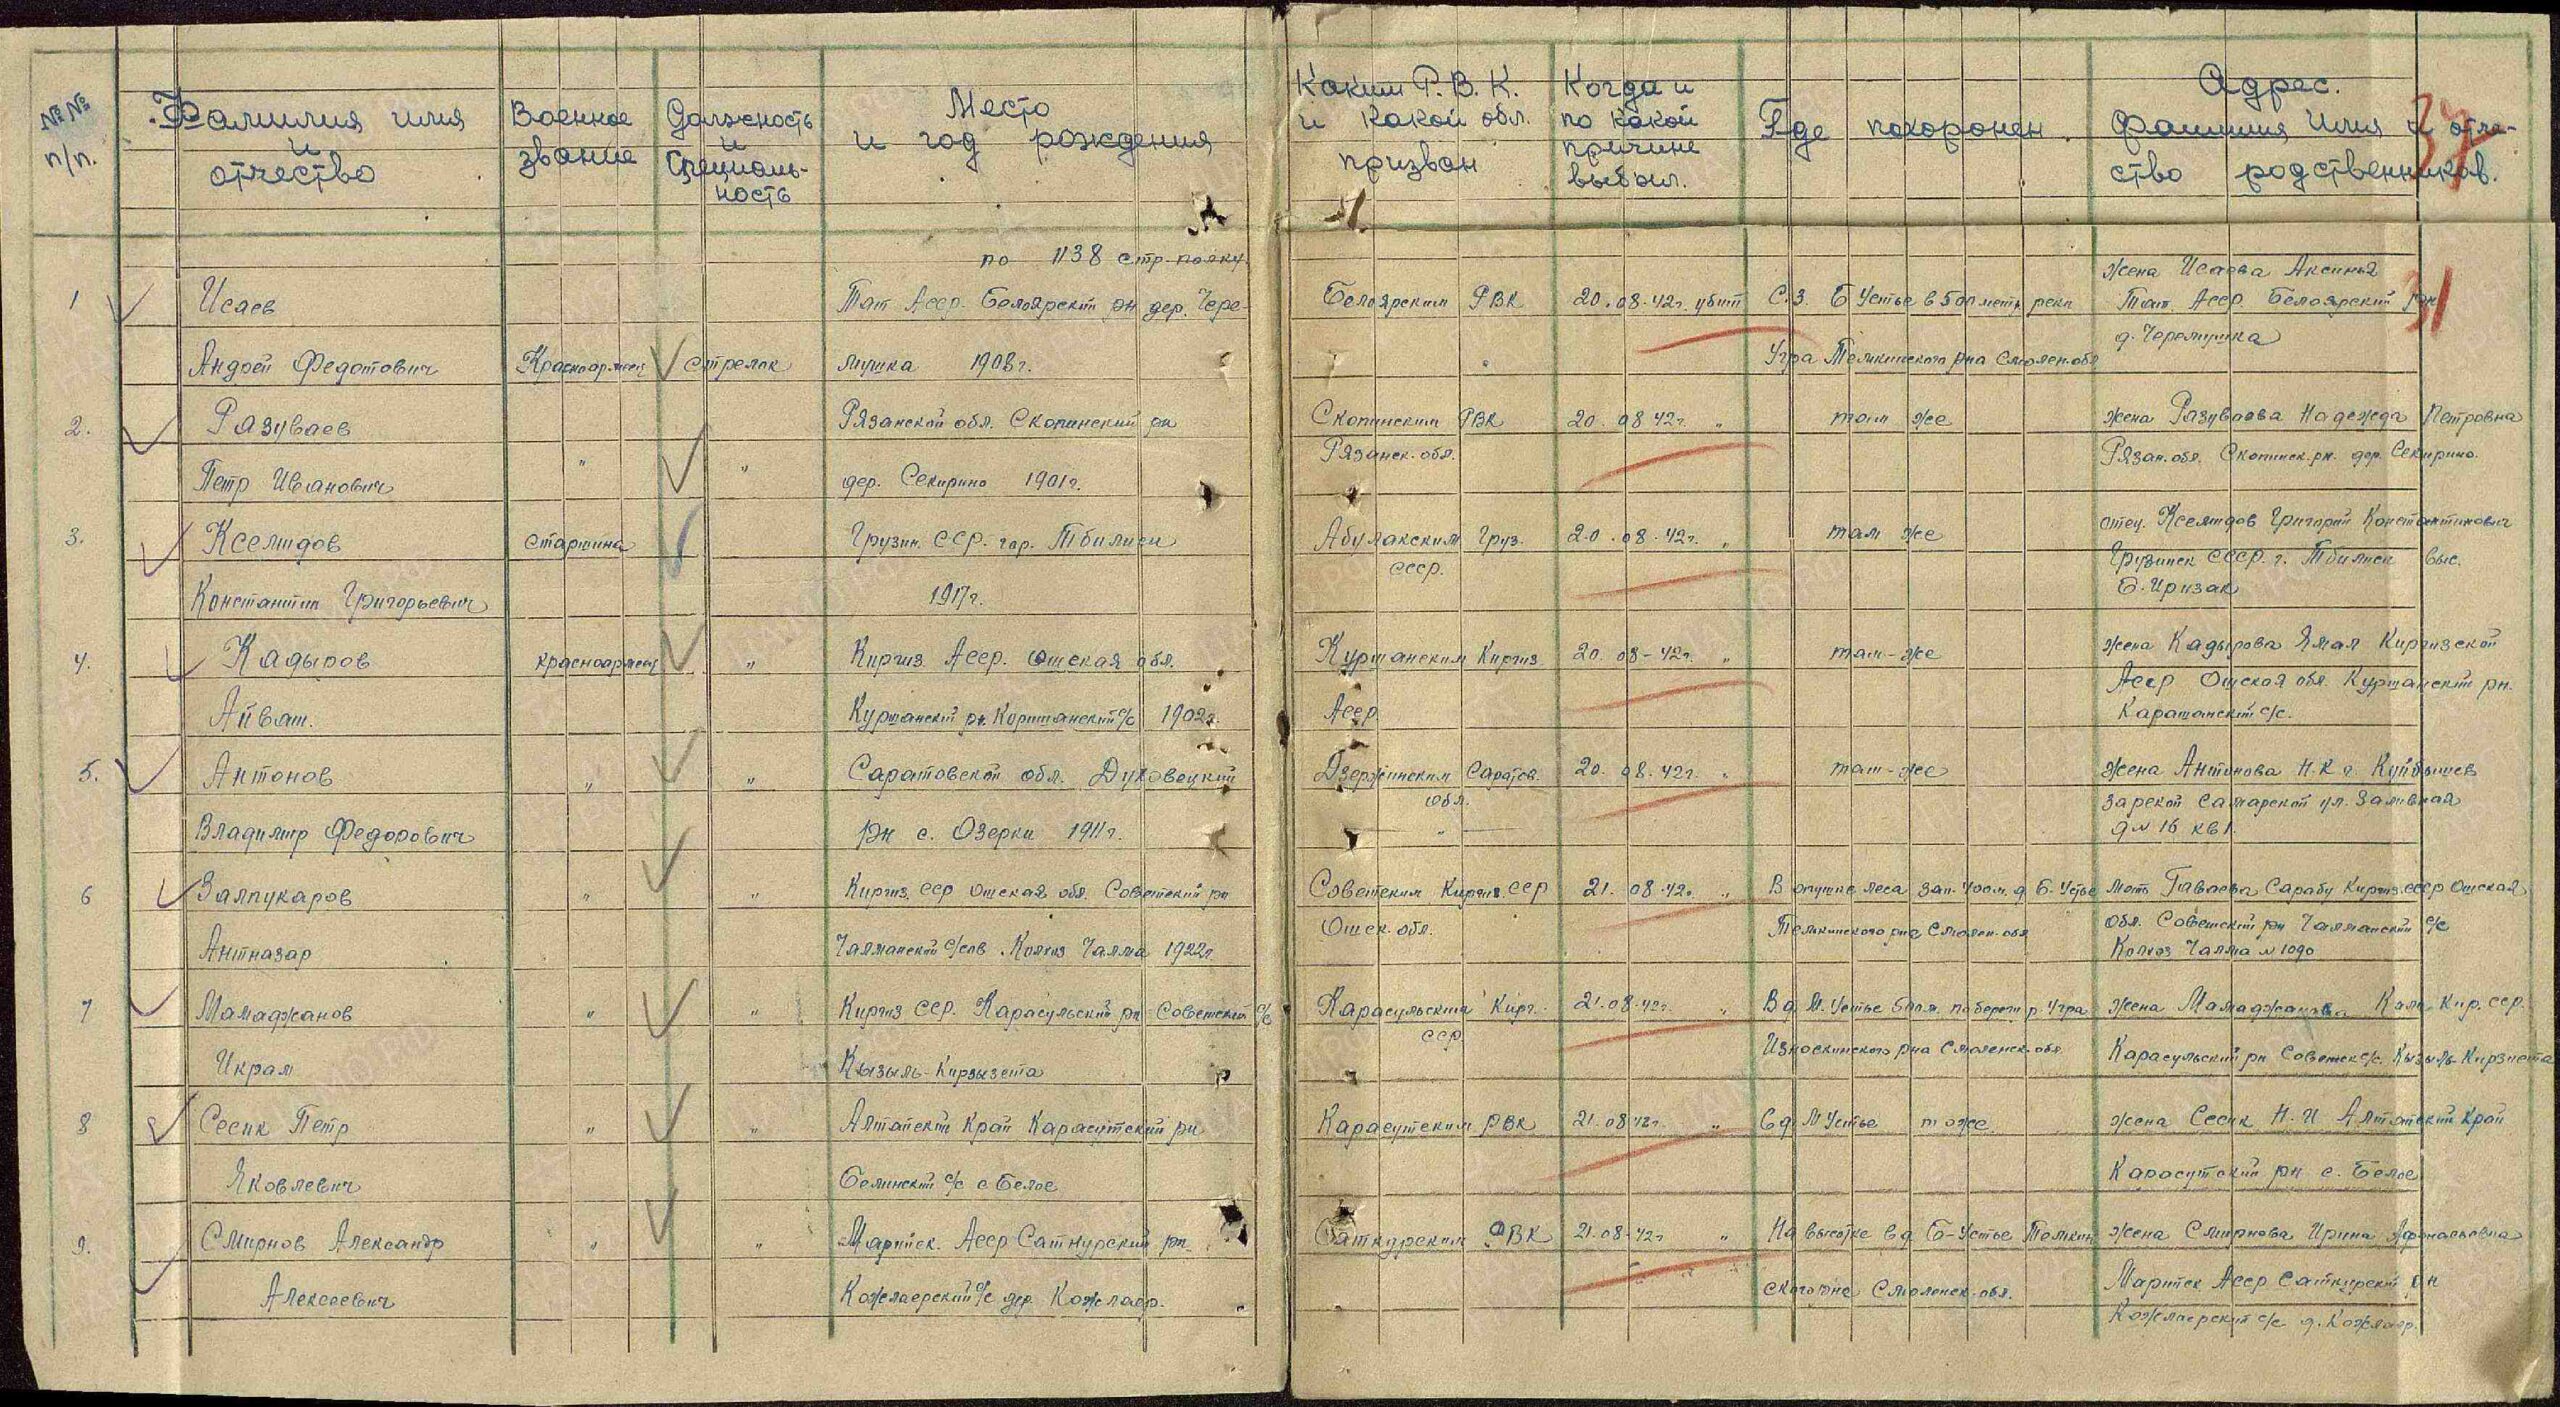 №№ п/п.
Фамилия имя и отчество
Военное звание
Должность и Специальность
Место и год рождения
Каким Р.В.К. и какой обл. призван
Когда и по какой причине выбыл.
Где похоронен
Адрес. Фамилия Имя и отчество родственников.
37
31
по 1138 стр. полку
1 Исаев Тат Асср. Белоярский рн дер. Чере- Белоярским РВК 20.08.42г. убит С.З. Б Устье в 500 метр. реки жена Исаева Аксинья
Тат. Асср. Белоярский рн
Андрей Федотович Красноармеец стрелок мушка 1908г. " Угра Темкинского рна Смолен. обл д. Черемушка
2. Разуваев Рязанской обл. Скопинский рн Скопинским РВК 20.08 42г. " там же жена Разуваева Надежда Петровна
Петр Иванович " " дер. Секирино 1901г. Рязанск. обл. Рязан. обл. Скопинск. рн. дер. Секирино.
3. Кселидов старшина Грузин. ССР. гор. Тбилиси Груз. 20.08.42г. " там же отец. Кселидов Григорий Константинович
ссср. Грузинск СССР. г. Тбилиси выс.
Константин Григорьевич 1917г.
4. Кадыров красноармеец " Киргиз. Асср. Ошская обл. Куршанским Киргиз. 20.08-42г. " там-же жена Кадырова Ямал Киргизской
Айваш. Куршанский рн. с/с 1902г. Асср. Асср Ошская обл. Куршанский рн.
Карашанский с/с.
5. Антонов " " Саратовской обл. Духовецкий Дзержинским Саратов. 20.08.42г. " там-же жена Антонова Н.К г. Куйбышев
обл. Самарской ул. Заливная
Владимир Федорович рн с. Озерки 1911г. " д № 16 кв 1.
6 Залпукаров " " Киргиз. ССР Ошская обл. Советский рн Советским Киргиз. ССР 21.08.42г. " В опушке леса зап. 400м. д Б-Устье Мать Гаваева Сарабу Киргиз. СССР Ошская
Антназар Чалманский с/сов. Колхоз Чалма 1922г. Ошск. обл. Темкинского рна Смолен. обл обл. Советский рн Чалманский с/с
Колхоз Чалма
7 Мамаджанов " " Киргиз ССР. Карасульский рн Советский с/с Карасульским Кирг. 21.08.42г. " В д. М. Устье 500м. по берегу р. Угра жена Мамаджанова Кир. ССР.
Икрам Кызыль-Киргызста ССР. Износкинского рна Смоленск. обл Карасульский рн Советск с/с. Кызыль-Киргизста
8 Сесик Петр " " Алтайский Край Карасутский рн Карасутским РВК 21.08 42г. " С д М Устье тоже жена Сесик Н.И Алтайский край
Яковлевич Белинский с/с с Белое Карасутский рн с. Белое
9. Смирнов Александр " " Марийск. Асср Сатнурский рн. Саткурским РВК 21.08-42г " На высотке в д Б-Устье Темкин жена Смирнова Ирина Афанасьевна
Алексеевич Кожлаерский с/с дер. Кожлаер. ского рне Смоленск. обл. Марийск Асср Саткурский рн
Кожлаерский с/с д. Кожлаер.